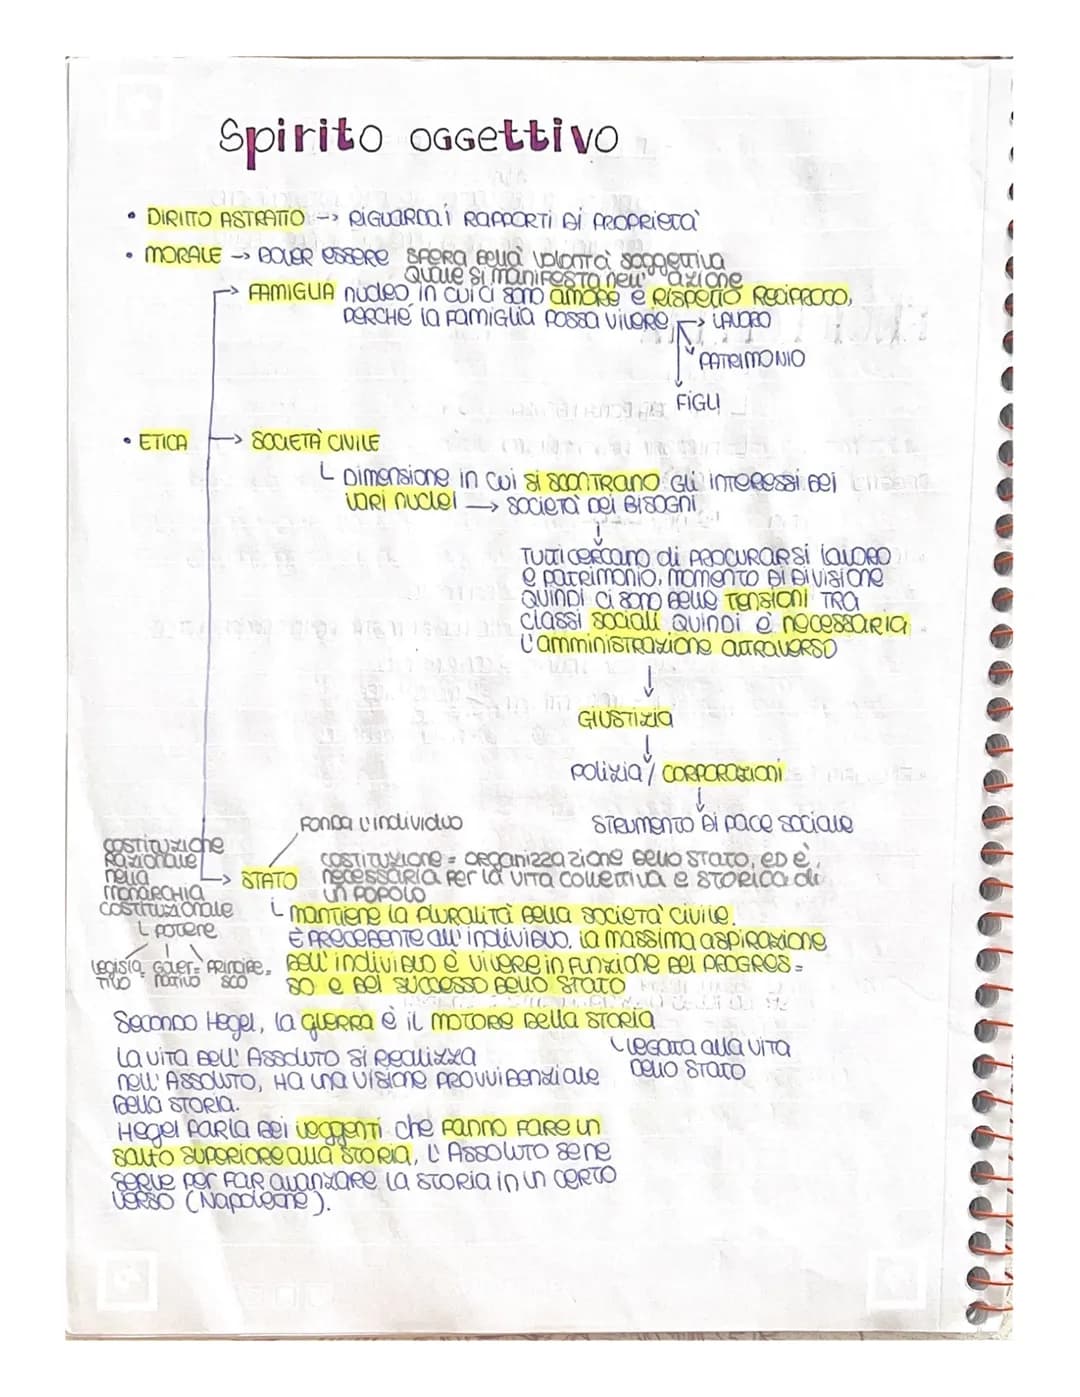 Spirito oggettivo
• DIRITTO ASTRATTO → RIGUARDA i RAPPORTI DI PROPRIETÀ
• MORALE → DOVER ESSERE SFERA DELLA VOLONTÀ SOGGETTIVA
QUALE SI MANIFESTA NELL' AZIONE
→ FAMIGLIA NUCLEO IN CUI CI SONO AMORE E RISPETTO RECIPROCO,
PERCHÉ LA FAMIGLIA POSSA VIVERE → LAVORO
PATRIMONIO
FIGLI
• ETICA → SOCIETÀ CIVILE
└ DIMENSIONE IN CUI SI SCONTRANO GLI INTERESSI DEI
VARI NUCLEI → SOCIETÀ DEI BISOGNI
↓
TUTTI CERCANO DI PROCURARSI LAVORO
E PATRIMONIO, MOMENTO DI DIVISIONE
QUINDI CI SONO DELLE TENSIONI TRA
CLASSI SOCIALI QUINDI È NECESSARIA
L'AMMINISTRAZIONE ATTRAVERSO
↓
GIUSTIZIA
↓
POLIZIA / CORPORAZIONI
↓
STRUMENTO DI PACE SOCIALE
FONDA L'INDIVIDUO
COSTITUZIONE
RAZIONALE
NELLA
MONARCHIA
COSTITUZIONALE
└ POTERE
LEGISLA= GOVER= PRINCIPE=
TIVO NATIVO SCO
→ STATO COSTITUZIONE = ORGANIZZAZIONE DELLO STATO, ED È
NECESSARIA PER LA VITA COLLETTIVA E STORICA DI
UN POPOLO
└ MANTIENE LA PLURALITÀ DELLA SOCIETÀ CIVILE.
È PRECEDENTE ALL'INDIVIDUO. LA MASSIMA ASPIRAZIONE
DELL'INDIVIDUO È VIVERE IN FUNZIONE DEI PROGRES=
SO E DEL SUCCESSO DELLO STATO
Secondo Hegel, LA GUERRA È IL MOTORE DELLA STORIA
└ LEGATA ALLA VITA
DELLO STATO
LA VITA DELL'ASSOLUTO SI REALIZZA
NELL'ASSOLUTO, HA UNA VISIONE PROVVIDENZIALE
DELLA STORIA.
Hegel PARLA DEI VEGGENTI CHE FANNO FARE UN
SALTO SUPERIORE ALLA STORIA, L'ASSOLUTO SE NE
SERVE PER FAR AVANZARE LA STORIA IN UN CERTO
VERSO (Napoleone).